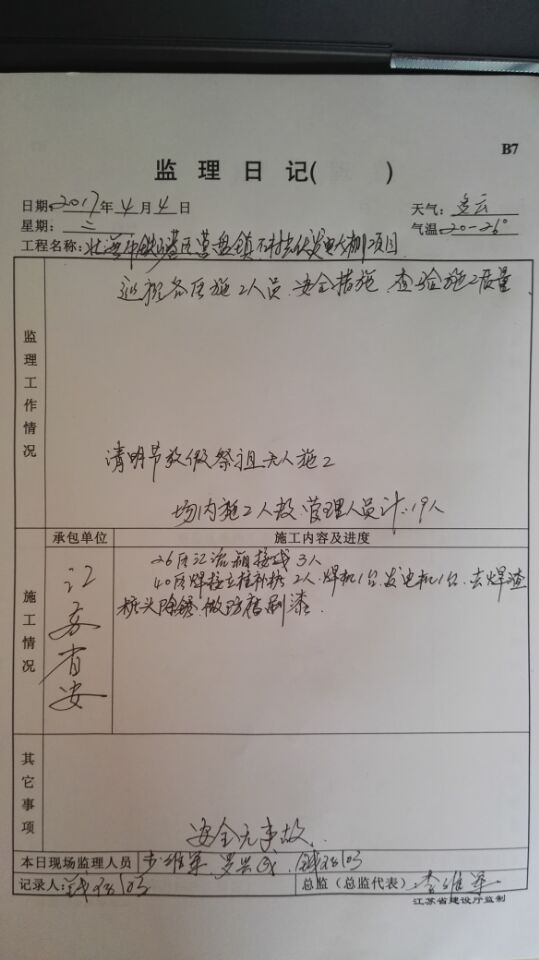 B7
监理日记( )
日期: 2017年4月4日 天气: 多云
星期: 二 气温: 20-26°
工程名称: 北海市铁山港区营盘镇 项目
巡视各区施工人员 安全措施 查验施工质量
监理工作情况
清明节放假祭祖 无人施工
场内施工人数 管理人员计:19人
承包单位 施工内容及进度
施工情况
江苏省安
26区汇流箱接线3人
40区焊接立柱补桩2人 焊机1台 发电机1台 去焊渣
桩头除锈 做防腐刷漆
其它事项
安全无事故
本日现场监理人员
记录人: 总监(总监代表) 李维军
江苏省建设厅监制